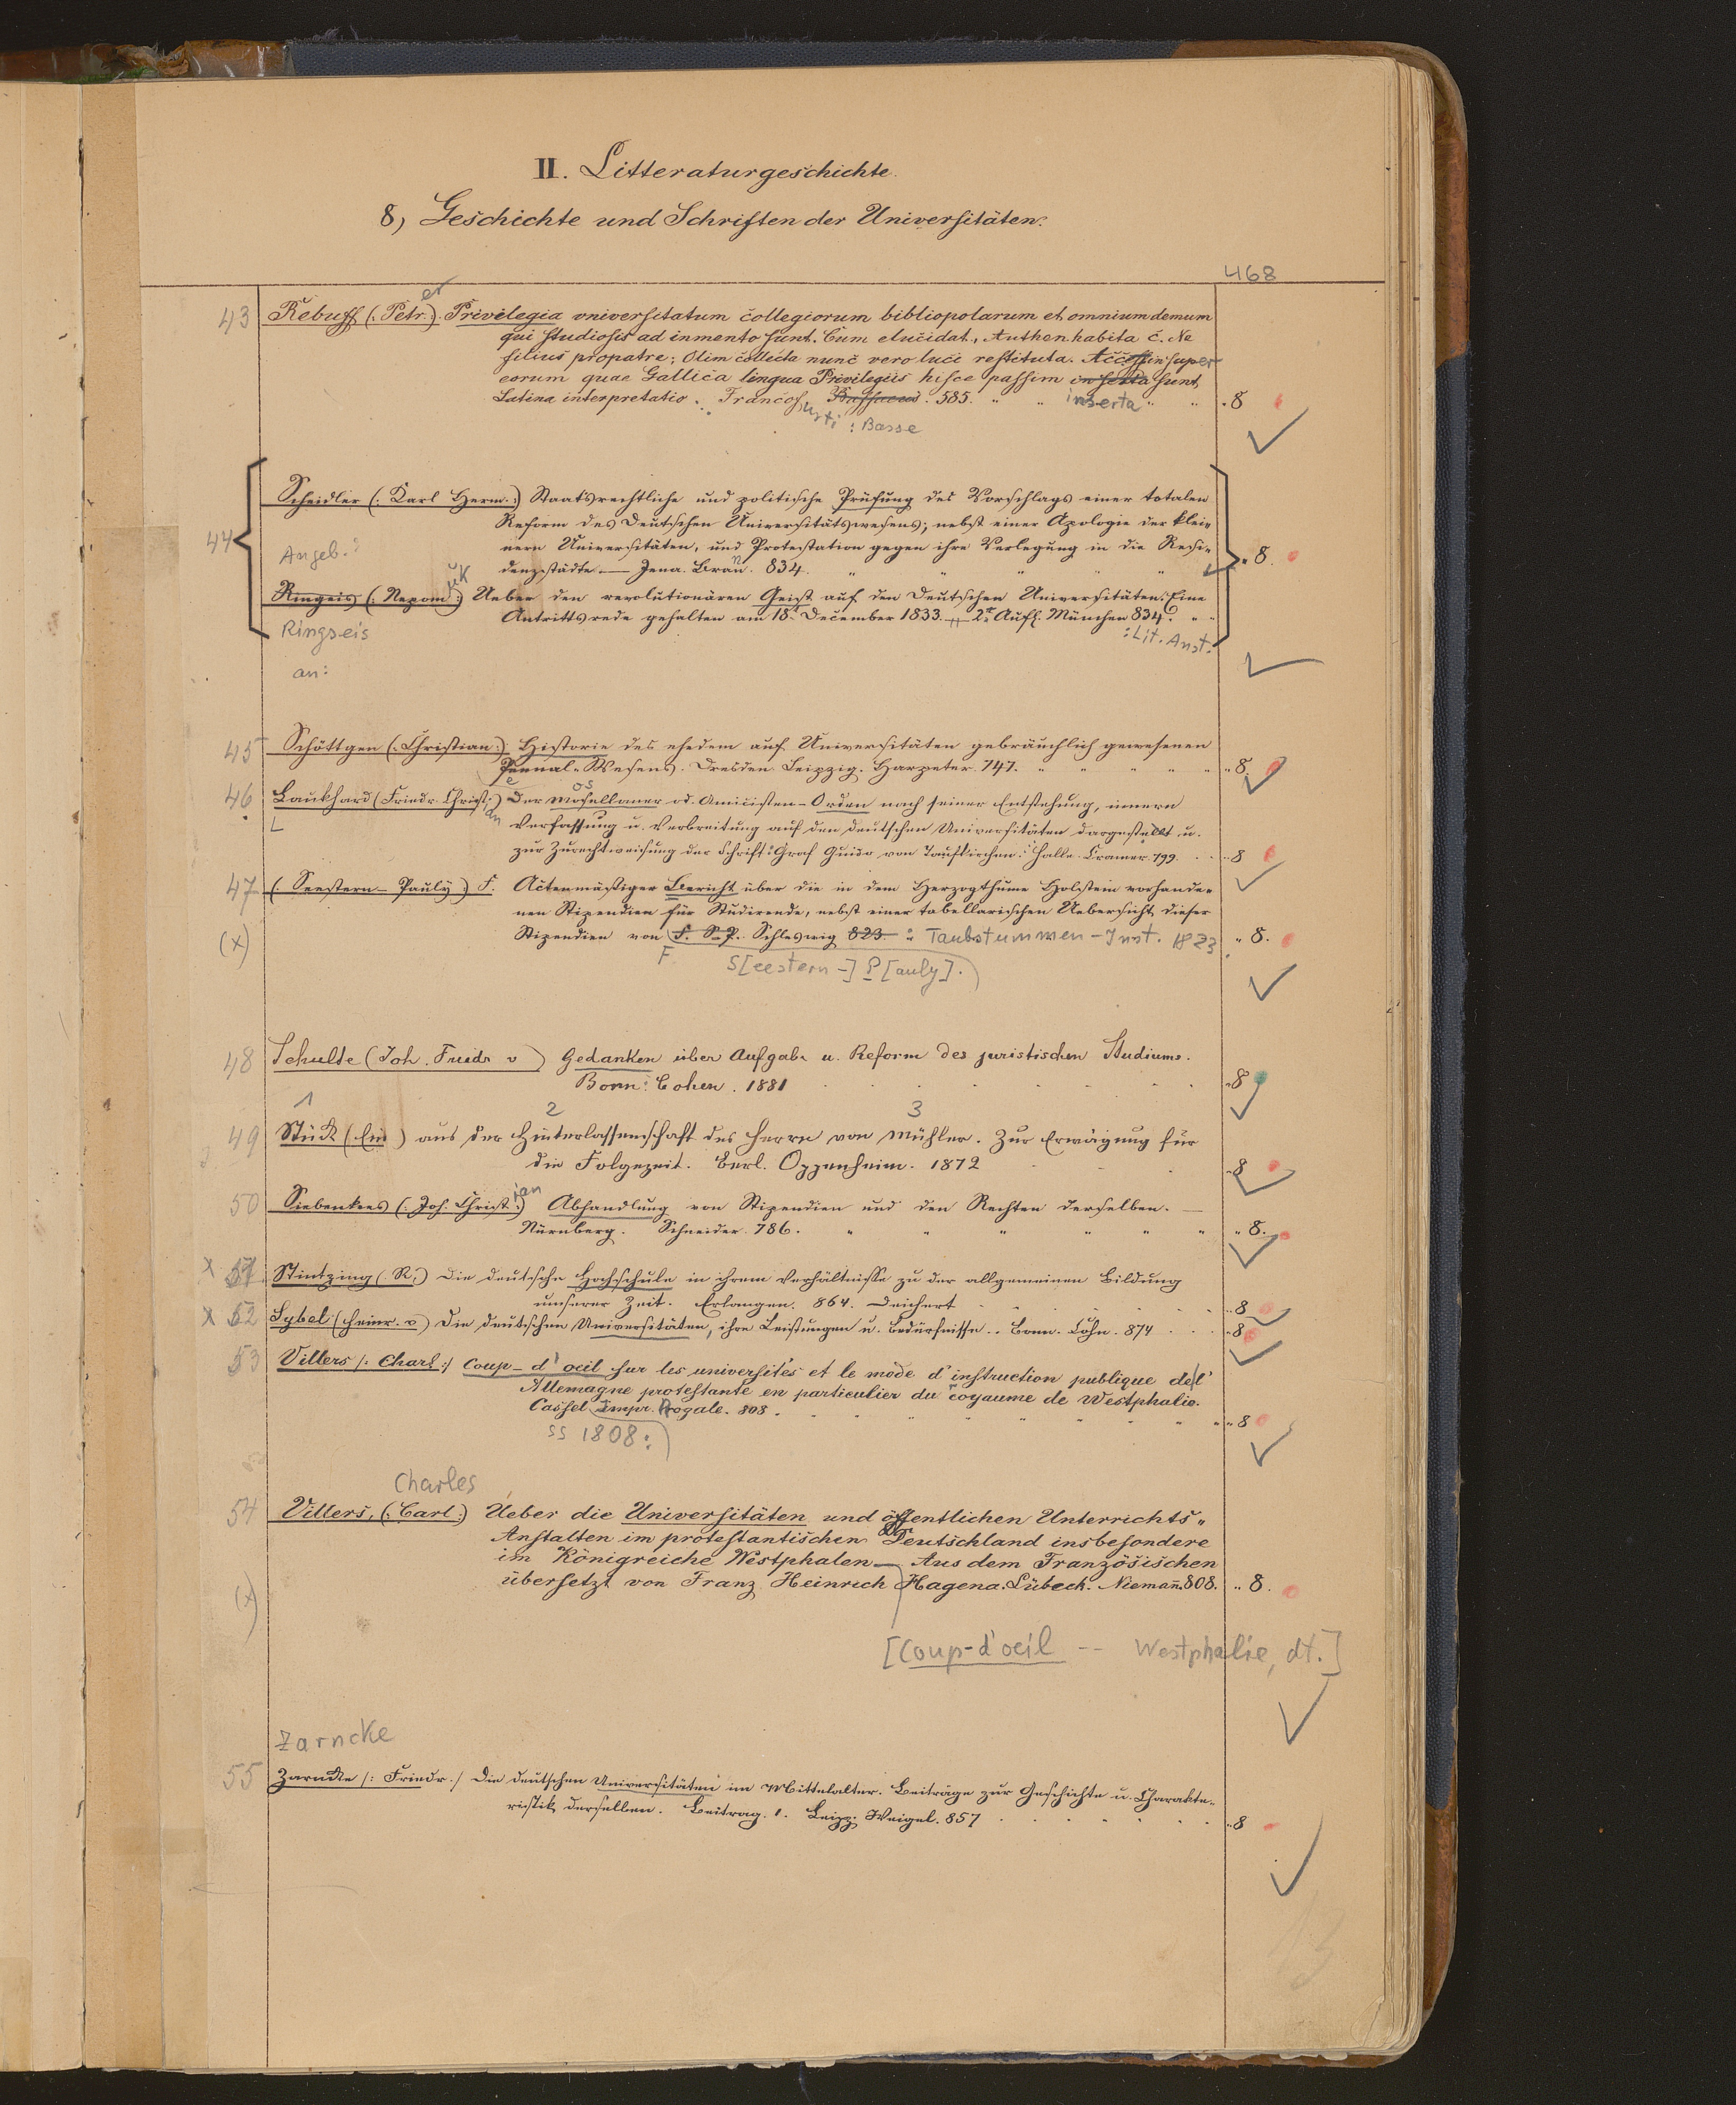 II. Litteraturgeschichte.
8, Geschichte und Schriften der Universitäten.
468
43 Rebuff (: Petr.:) er Privilegia vniversitatum collegiorum bibliopolarum et omnium demum
qui studiosis ad inmento sunt. Cum elucidat., Authen habita C. Ne
filius pro patre; Olim collecta nunc vero luci restituta. Accessit insuper
eorum quae Gallica lingua Privilegiis hisce passim inserta sunt,
Latina interpretatio. Francof Bassaeus. 585. " " inserta " " "8
urti : Basse
44 Scheidler (: Karl Herm.:) Staatsrechtliche und politische Prüfung des Vorschlags einer totalen
Reform des Deutschen Universitätswesens; nebst einer Apologie der klei-
Angeb.: nern Universitäten, und Protestation gegen ihre Verlegung in die Resi-
denzstädte. — Jena. Bran. 834. " " " " " "8.
Ringeis (: Nepom:) uk Ueber den revolutionären Geist auf den Deutschen Universitäten. Eine
Antrittsrede gehalten am 18t December 1833. 2te Aufl. München 834. " "
Ringseis : Lit. Anst.
an:
45 Schöttgen (: Christian:) Historie des ehedem auf Universitäten gebräuchlich gewesenen
Pennal-Wesens. Dresden Leipzig. Harpeter. 747. " " " " " "8.
46 Laukhard (Friedr. Christ:) ian Der Mosellaner od. Amicisten-Orden nach seiner Entstehung, innern
L Verfassung u. Verbreitung auf den deutschen Universitäten dargestellt u.
zur Zurechtweisung der Schrift: Graf Guido von Taufkirchen. Halle. Cramer. 799. "8
47 (Seestern-Pauly) F. Actenmäßiger Bericht über die in dem Herzogthume Holstein vorhande-
nen Stipendien für Studirende, nebst einer tabellarischen Uebersicht dieser
(x) Stipendien von F. S.-P. Schleswig 823. : Taubstummen-Inst. 1823 "8.
F. S[eestern-] P[auly].
48 Schulte (Joh. Friedr v ) Gedanken über Aufgabe u. Reform des juristischen Studiums.
Bonn: Cohen. 1881 "8
1 2 3
49 Stück (Ein) aus der Hinterlassenschaft des Herrn von Mühler. Zur Erwägung für
die Folgezeit. Berl. Oppenheim. 1872 "8
50 Siebenkees (: Joh. Christ:) ian Abhandlung von Stipendien und den Rechten derselben. —
Nürnberg. Schneider. 786. " " " " " " "8.
x 51 Stintzing (R.) Die deutsche Hochschule in ihrem Verhältnisse zu der allgemeinen Bildung
unserer Zeit. Erlangen. 864. Deichert "8
x 52 Sybel (Heinr. v.) Die deutschen Universitäten, ihre Leistungen u. Bedürfnisse. Bonn. Cohn. 874 "8
53 Villers /: Charl:/ Coup-d'oeil sur les universités et le mode d'instruction publique de l'
Allemagne protestante en particulier du royaume de Westphalie.
Cassel Impr. Royale. 808. " " " " " "8
ss 1808:
Charles
54 Villers, (: Carl:) Ueber die Universitäten und öffentlichen Unterrichts-
Anstalten im protestantischen Deutschland insbesondere
im Königreiche Westphalen — Aus dem Französischen
(x) übersetzt von Franz Heinrich Hagena. Lübeck. Niemañ 808. "8.
[Coup-d'oeil -- Westphalie, dt.]
Zarncke
55 Zarncke /: Friedr./ Die deutschen Universitäten im Mittelalter. Beiträge zur Geschichte u. Charakte-
ristik derselben. Beitrag. 1. Leipz. Weigel. 857 "8
13